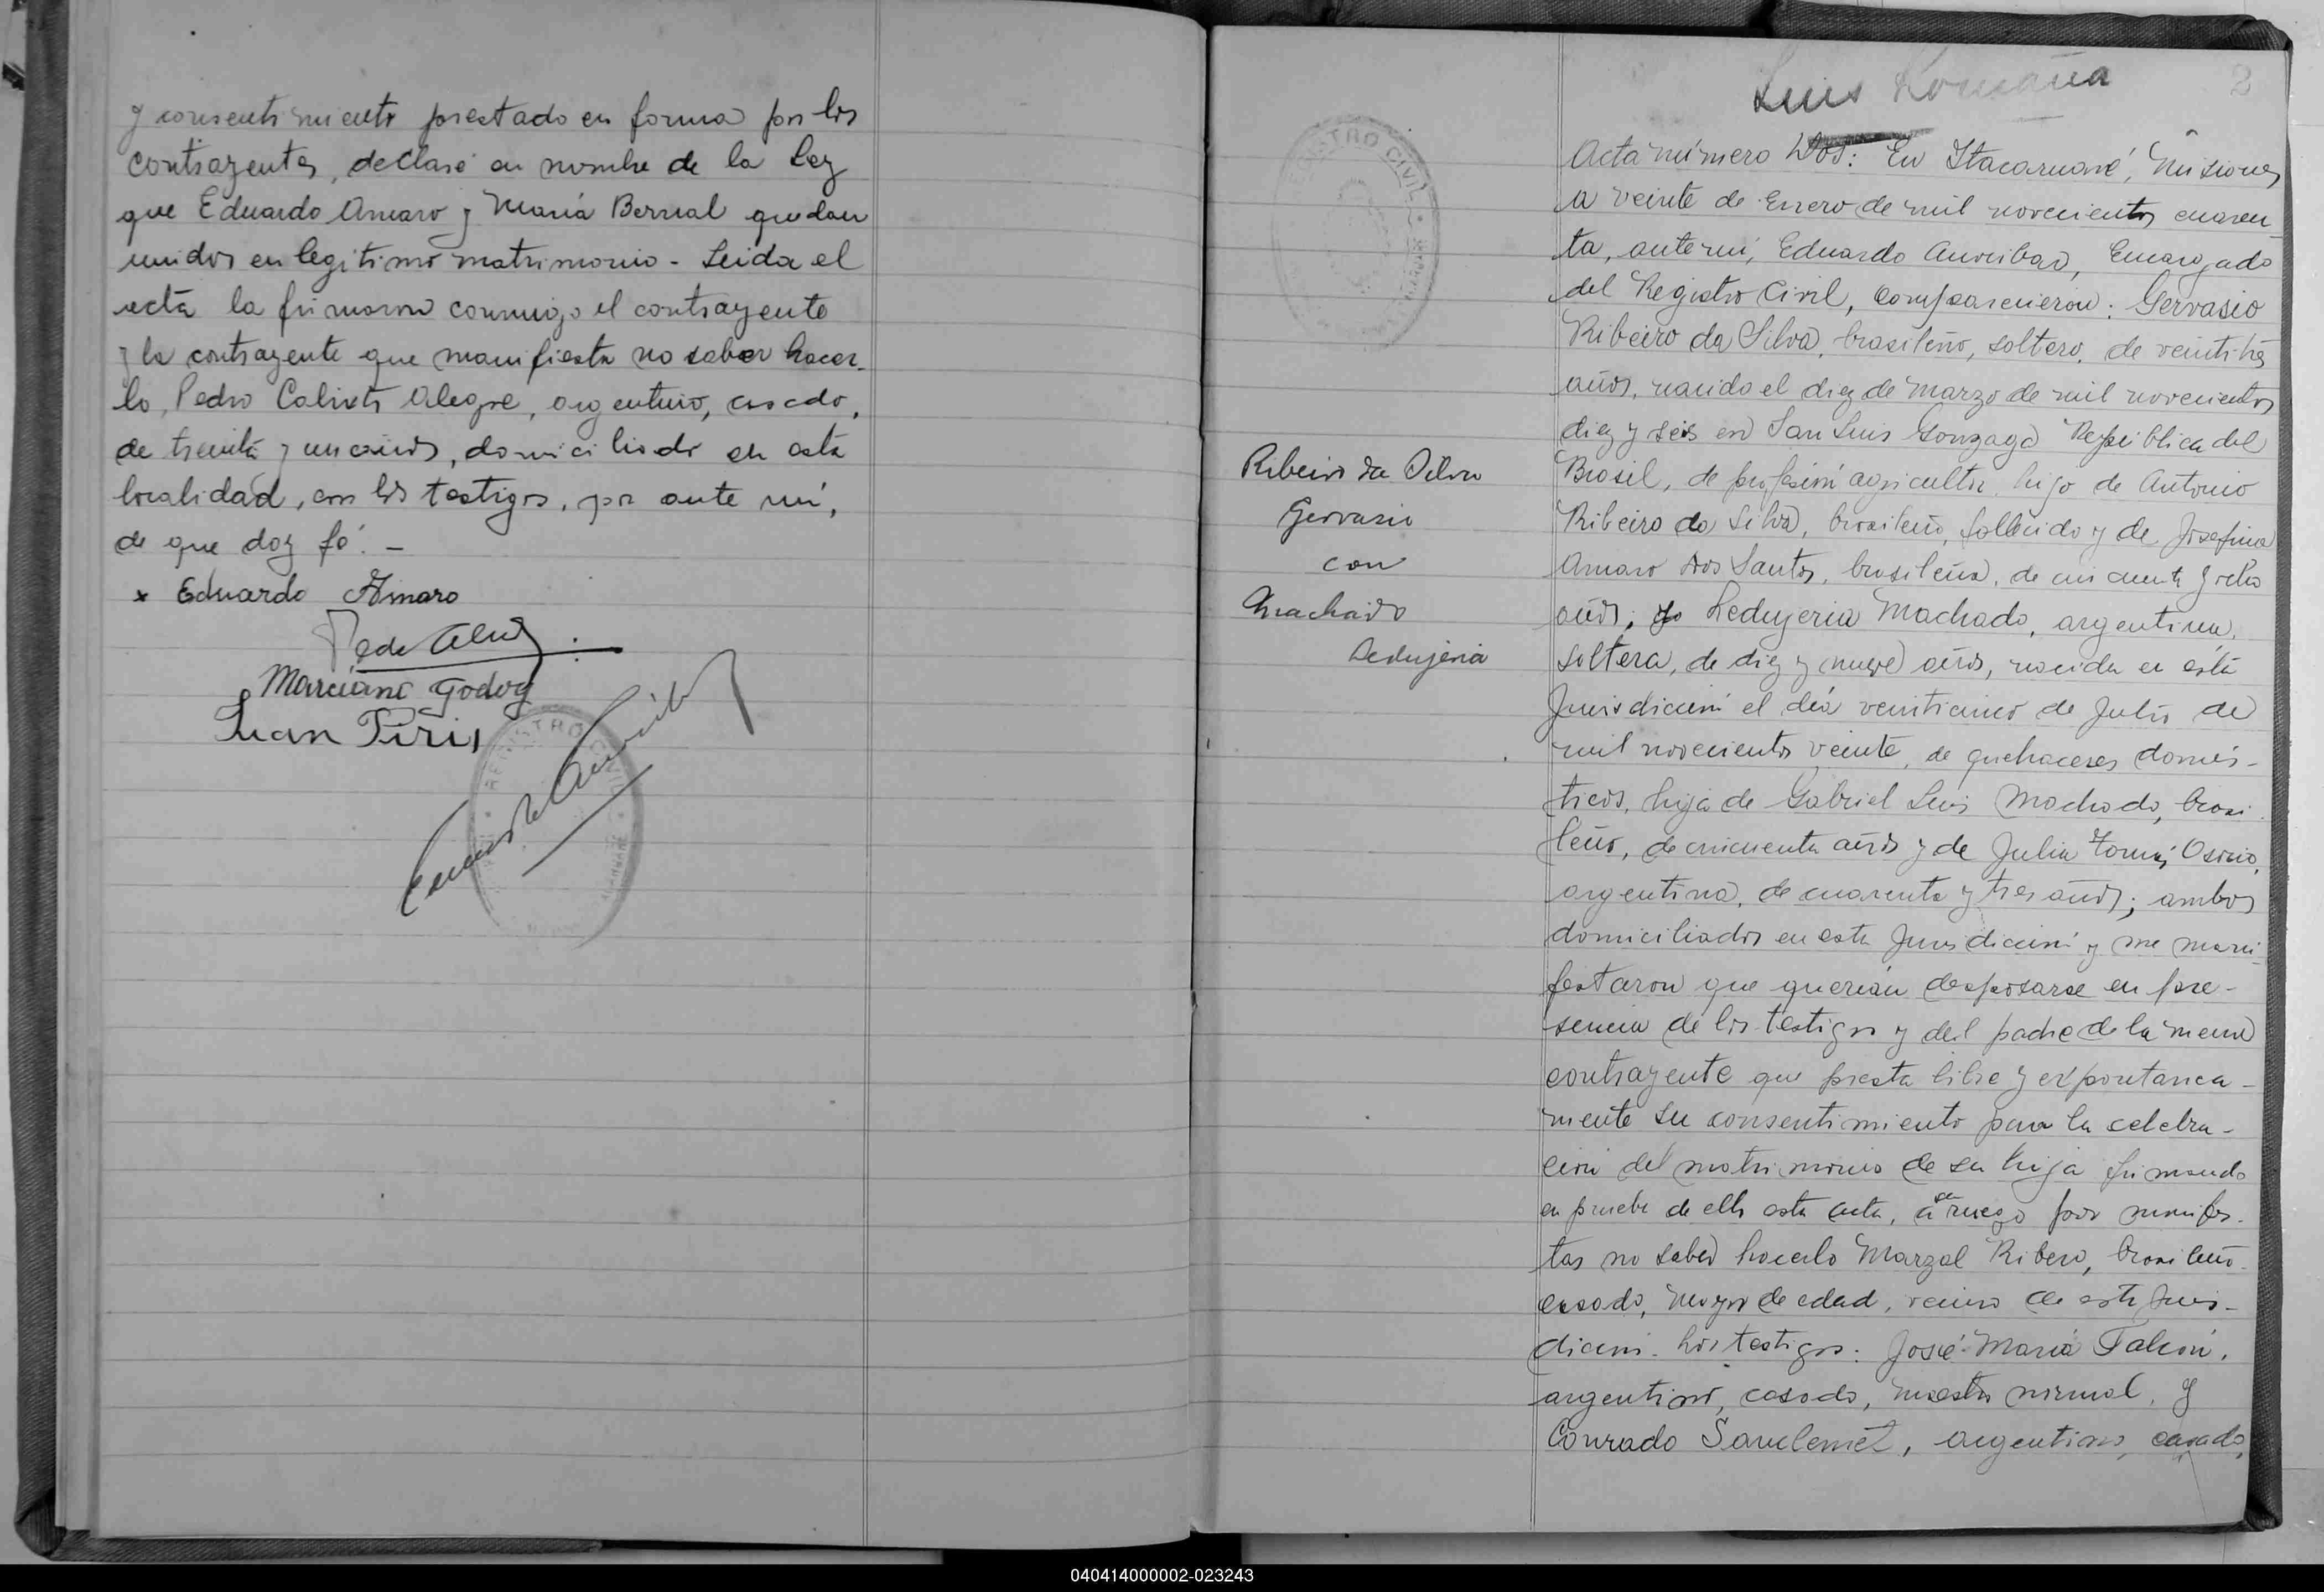 y consentimiento prestado en forma por los
contrayentes, declaré en nombre de la Ley
que Eduardo Amaro y María Bernal quedan
unidos en legitimo matrimonio - Leida el
acta la firmaron conmigo el contrayente
y la contrayente que manifiesta no saber hacer-
lo, Pedro Calixto Alegre, argentino, casado,
de treinta y un años, domiciliado en esta
localidad, con los testigos, por ante mí,
de que doy fé. -
x Eduardo Amaro
Marciano Godoy
Juan Piris
REGISTRO CIVIL
Luis Romaña
2
REGISTRO CIVIL
Acta número Dos: En Itacaruaré, Misiones
a veinte de Enero de mil novecientos cuaren-
ta, ante mí, Eduardo Auzcibar, Encargado
del Registro Civil, comparecieron: Gervasio
Ribeiro da Silva, brasileño, soltero, de veintitrés
años, nacido el diez de Marzo de mil novecientos
diez y seis en San Luis Gonzaga República del
Brasil, de profesión agricultor, hijo de Antonio
Ribeiro da Silva, brasileño, fallecido y de Josefina
Amaro dos Santos, brasileña, de cincuenta y ocho
años; y Ledujeria Machado, argentina,
soltera, de diez y nueve años, nacida en esta
Jurisdicción el día veinticinco de Julio de
mil novecientos veinte, de quehaceres domés-
ticos, hija de Gabriel Luis Machado, brasi-
leño, de cincuenta años y de Julia Osorio,
argentina, de cuarenta y tres años; ambos
domiciliados en esta Jurisdicción y me mani-
festaron que querían desposarse en pre-
sencia de los testigos y del padre de la menor
contrayente que presta libre y expontanea-
mente su consentimiento para la celebra-
ción del matrimonio de su hija firmando
en prueba de ello esta acta, a su ruego por manifes-
tar no saber hacerlo Marzal Ribero, brasileño
casado, mayor de edad, vecino de esta Juris-
dicción. Los testigos: José María Falcón,
argentino, casado, maestro normal, y
Conrado Sanclemet, argentino, casado,
Ribeiro da Silva
Gervasio
con
Machado
Ledujeria
040414000002-023243